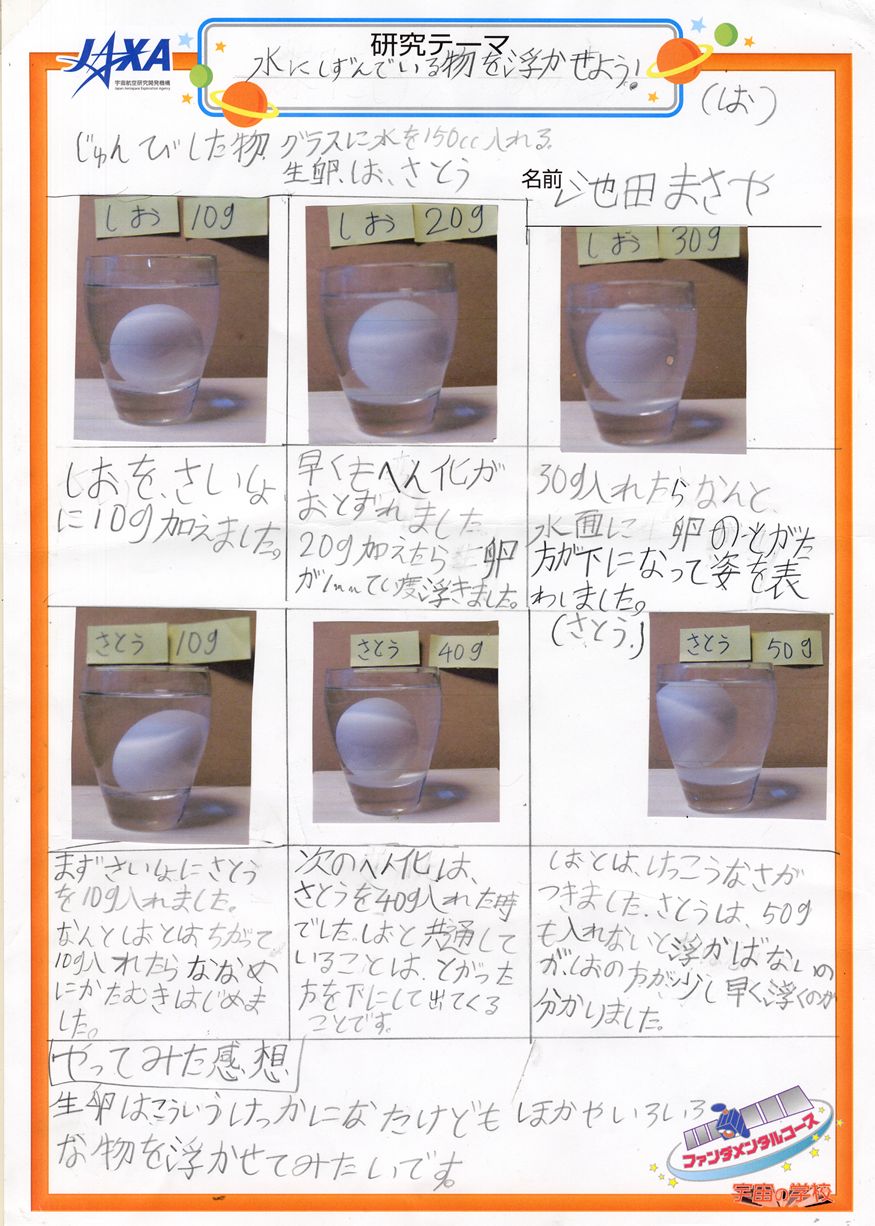 JAXA
宇宙航空研究開発機構
Japan Aerospace Exploration Agency
研究テーマ
水にしずんでいる物を浮かせよう!
(しお)
じゅんびした物 グラスに水を150cc入れる
生卵、しお、さとう
名前 池田まさや
しお 10g
しお 20g
しお 30g
しおを、さいしょ
に10g加えました。
早くもへん化が
おとずれました。
20g加えたら生卵
が1mmてい度浮きました。
30g入れたらなんと、
水面に生卵のとがた
方が下になって姿を表
わしました。
(さとう)
さとう 10g
さとう 40g
さとう 50g
まずさいしょにさとう
を10g入れました。
なんとしおとはちがって
10g入れたらななめ
にかたむきはじめま
した。
次のへん化は、
さとうを40g入れた時
でした。しおと共通して
いることは、とがった
方を下にして出てくる
ことです。
しおとは、けっこうなさが
つきました。さとうは、50g
も入れないと浮かばないの
が、しおの方が少し早く浮くのが
分かりました。
やってみた感想
生卵はこういうけっかになたけども ほかやいろいろ
な物を浮かせてみたいです。
ファンダメンタルコース
宇宙の学校